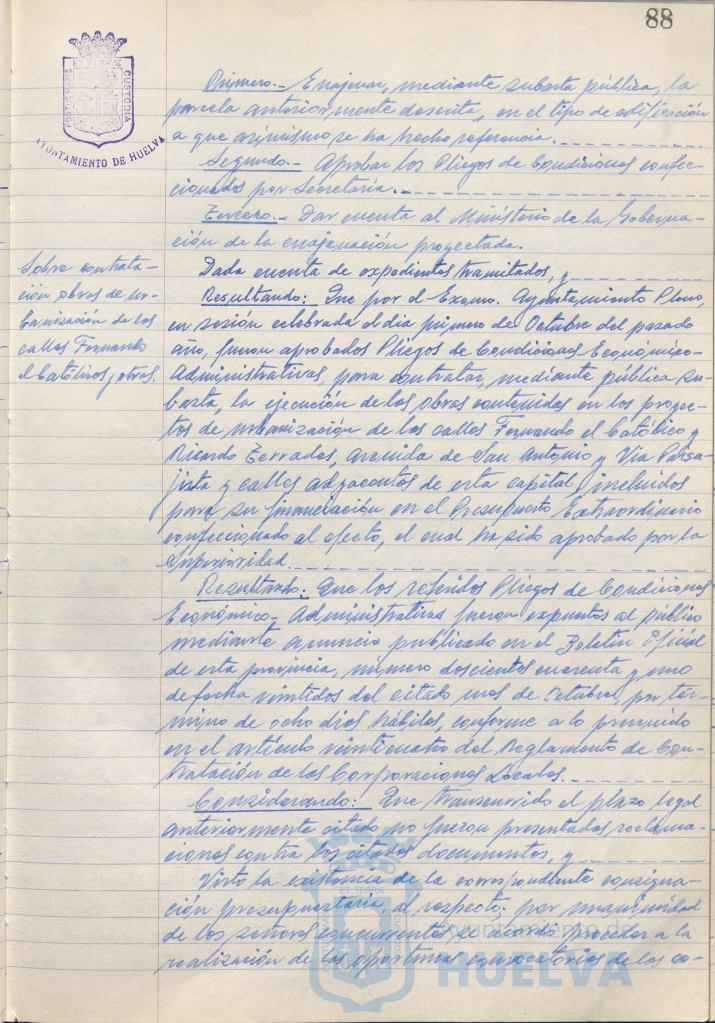 88
PORTUS MARIS ET TERRÆ CUSTODIA
AYUNTAMIENTO DE HUELVA
Primero.- Enajenar, mediante subasta pública, la
parcela anteriormente descrita, en el tipo de edificación
a que asimismo se ha hecho referencia.
Segundo.- Aprobar los Pliegos de Condiciones confec-
cionados por Secretaría.
Tercero.- Dar cuenta al Ministerio de la Goberna-
ción de la enajenación proyectada.
Sobre contrata-
ción obras de ur-
banización de las
calles Fernando
el Católico y otras.
Dada cuenta de expedientes tramitados, y
Resultando: Que por el Excmo. Ayuntamiento Pleno,
en sesión celebrada el día primero de Octubre del pasado
año, fueron aprobados Pliegos de Condiciones Económico-
Administrativas, para contratar, mediante pública su-
basta, la ejecución de las obras contenidas en los proyec-
tos de urbanización de las calles Fernando el Católico y
Ricardo Terrades, avenida de San Antonio y Vía Paisa-
jista y calles adyacentes de esta capital, incluidos
para su financiación en el Presupuesto Extraordinario
confeccionado al efecto, el cual ha sido aprobado por la
Superioridad.
Resultando: Que los referidos Pliegos de Condiciones
Económico-Administrativas fueron expuestos al público
mediante anuncio publicado en el Boletín Oficial
de esta provincia, número doscientos cuarenta y uno
de fecha veintidos del citado mes de Octubre, por tér-
mino de ocho días hábiles, conforme a lo prevenido
en el artículo veinticuatro del Reglamento de Con-
tratación de las Corporaciones Locales.
Considerando: Que transcurrido el plazo legal
anteriormente citado no fueron presentadas reclama-
ciones contra los citados documentos, y
Visto la existencia de la correspondiente consigna-
ción presupuestaria, al respecto; por unanimidad
de los señores concurrentes se acordó proceder a la
realización de las oportunas convocatorias de las co-
Ayuntamiento de
HUELVA